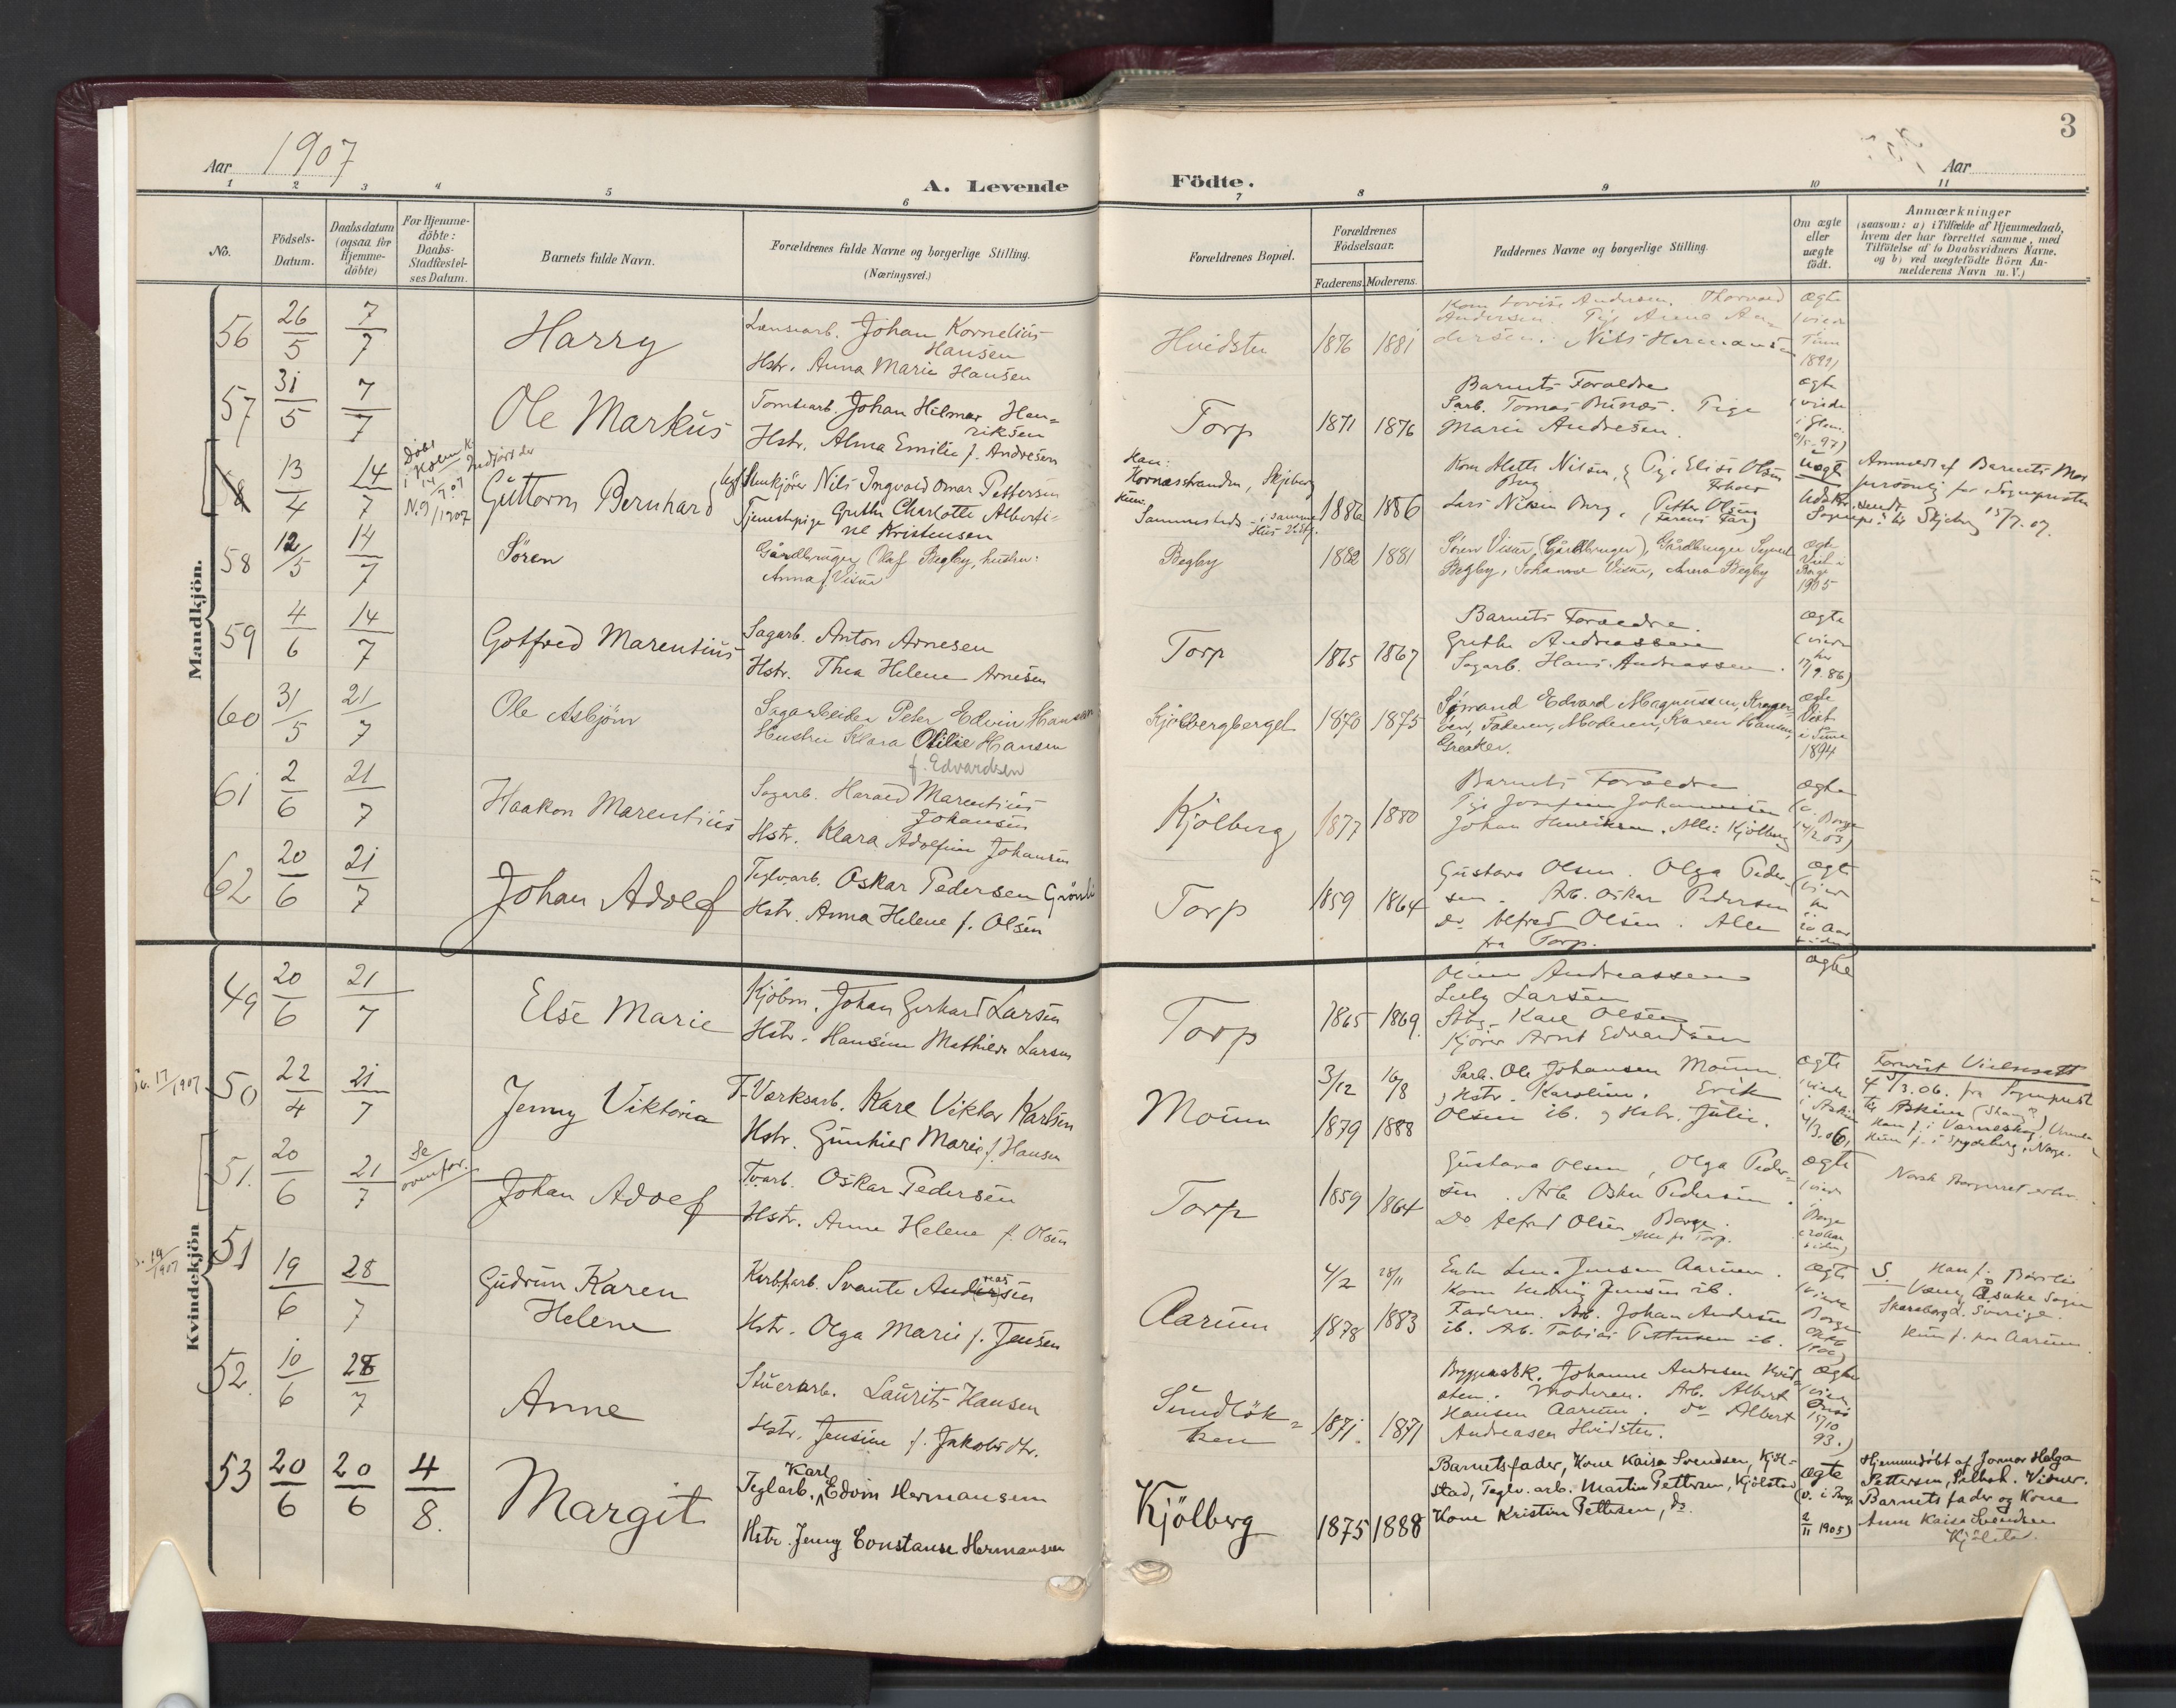 3
Aar 1907
A. Levende Födte.
Aar
1 2 3 4 5 6 7 8 9 10 11
No.
Födsels-
Datum.
Daabsdatum
(ogsaa for
Hjemme-
döbte)
For Hjemme-
döbte:
Daabs-
Stadfestel-
ses Datum.
Barnets fulde Navn.
Forældrenes fulde Navne og borgerlige Stilling.
(Næringsvei.)
Forældrenes Bopæl.
Forældrenes
Födselsaar.
Faderens. Moderens.
Faddernes Navne og borgerlige Stilling.
Om ægte
eller
uægte
födt.
Anmærkninger
(saasom: a) i Tilfælde af Hjemmedaab,
hvem der har forrettet samme, med
Tilföielse af to Daabsvidners Navne,
og b) ved uægtefödte Börn An-
melderens Navn m. V.)
Mandkjön.
56 26/5 7/7 Harry
Lænsearb. Johan Kornelius
Hansen
Hstr. Anna Marie Hansen
Hvidsten 1876 1881
Kone Lovise Andersen. Thorvald
Andersen. Pige Anna An-
dersen. Nils Hermansen
ægte
1899)
57 31/5 7/7 Ole Markus
Tomtearb. Johan Hilmar Hen=
riksen
Hstr. Alma Emilie f. Andresen
Torp 1871 1876
Barnets Forældre
Sarb. Tomas Bunæs. Pige
Marie Andresen.
ægte
(viede
i Glem.
13/4 14/7
Döbt
i
14/7 07
No. 9/1907
Guttorm Bernhard
Nils Ingvald Omar Pettersen
Tjenestepige Grethe Charlotte Alberti-
ne Kristensen
Han:
Kornæsstranden, Skjeberg
Hun,
Sammesteds
1886 1886
Kone Alette Nilsen, Pige Elise Olsen
Berg
Lars Nilsen Berg, Petter Olsen
(Farens Far)
uægte
Anmeldt af Barnets Mor
personlig for Sognepresten
Udskr. sendt
Sognepr. til Skjeberg 15/7.07.
58 12/5 14/7 Sören
Gårdbruger Olaf Begby, hustru:
Anna f. Visur
Begby 1882 1881
Sören Visur (Gårdbruger), Gårdbruger Syvert
Begby, Johanne Visur, Anna Begby
ægte
Viet i
Borge
1905
59 4/6 14/7 Gotfred Marentius
Sagarb. Anton Arnesen
Hstr. Thea Helene Arnesen
Torp 1865 1867
Barnets Forældre.
Grethe Andreassen
Sagarb. Hans Andreassen.
ægte
(viede
her
17/9.86)
60 31/5 21/7 Ole Asbjörn
Sagarbeider Peter Edvin Hansen
Hustru Klara Otilie Hansen
f. Edvardsen
Kjölbergberget 1870 1875
Sömand Edvard Magnussen, Krager-
öen, Faderen, Moderen, Karen Hansen,
Greaker.
ægte
Viet
i Tune
1894
61 2/6 21/7 Haakon Marentius
Sagarb. Harald Marentius
Johansen
Hstr. Klara Adolfine Johansen
Kjölberg 1877 1880
Barnets Forældre
Pige Josefine Johannesen
Johan Henriksen. Alle: Kjölberg
ægte
(v. Borge
62 20/6 21/7 Johan Adolf
Teglv.arb. Oskar Pedersen Grönli
Hstr. Anna Helene f. Olsen
Torp 1859 1864
Gustava Olsen. Olga Peder-
sen. Arb. Oskar Pedersen
do Alfred Olsen. Alle
fra Torp.
ægte
(viede
Kvindekjön
49 20/6 21/7 Else Marie
Kjöbm. Johan Gerhard Larsen
Hstr. Hansine Mathilde Larsen
Torp 1865 1869
Andreassen
Larsen
Karl Olsen
Kjörer Arnt Edvardsen
ægte
Sv. 17/1907
50 22/4 21/7 Jenny Viktoria
T-Værksarb. Karl Viktor Karlsen
Hstr. Gunhild Marie f. Hansen
Moum 3/12 1879 16/8 1888
Sarb. Ole Johansen Moum
, Hstr. Karoline. Erik
Olsen ib. , Hstr. Julie.
ægte
(viede
i Askim
4/3.06)
Forevist Vielsesatt
4/3.06. fra Sogneprest
til Askim
Han f. i Værmskog
Hun f. i Spydeberg, Norge.
51. 20/6 21/7
Se
ovenfor.
Johan Adolf
Tv.arb. Oskar Pedersen
Hstr. Anne Helene f. Olsen
Torp 1859 1864
Gustava Olsen, Olga Peder-
sen. Arb. Oskar Pedersen.
Do Alfred Olsen Borge.
Alle fr. Torp.
ægte
(viede
i Borge
i 20 Aar
siden)
Norsk Borgerret erhv.
S. 19/1907
51 19/6 28/7
Gudrun Karen
Helene
Svante Andersen
Hstr. Olga Marie f. Jensen
Aarum 4/2 1878 28/11 1883
Enke Lina Jensen Aarum.
Kone Hedvig Jensen ib.
Faderen. Arb. Johan Andersen
ib. Arb. Tobias Pettersen ib.
ægte
(viede
Borge
S. Han f.
Skaraborg l. Sverige.
Hun f. paa Aarum.
52. 10/6 28/7 Anne
Stuerarb. Laurits Hansen
Hstr. Jensine f. Jakobsdtr.
Sundlök=
ken 1871. 1871
Johanne Andresen Hvid-
sten. Moderen. Arb. Albert
Hansen Aarum. do Albert
Andreasen Hvidsten.
ægte
(viede
Onsö
15/10
93.)
53 20/6 20/6 4/8. Margit
Karl
Teglarb. Edvin Hermansen
Hstr. Jenny Constanse Hermansen
Kjölberg 1875 1888
Barnets fader, Kone Kaisa Svendsen, Kjöl-
stad, Teglv.arb. Martin Pettersen, Kjölstad
Kone Kristin Pettersen, do.
ægte
(v. i Borge
2/11 1905)
Hjemmedöbt af Jormor Helga
Pettersen, Selbak. Vidner.
Barnets fader og Kone
Anne Kaisa Svendsen
Kjölstad.